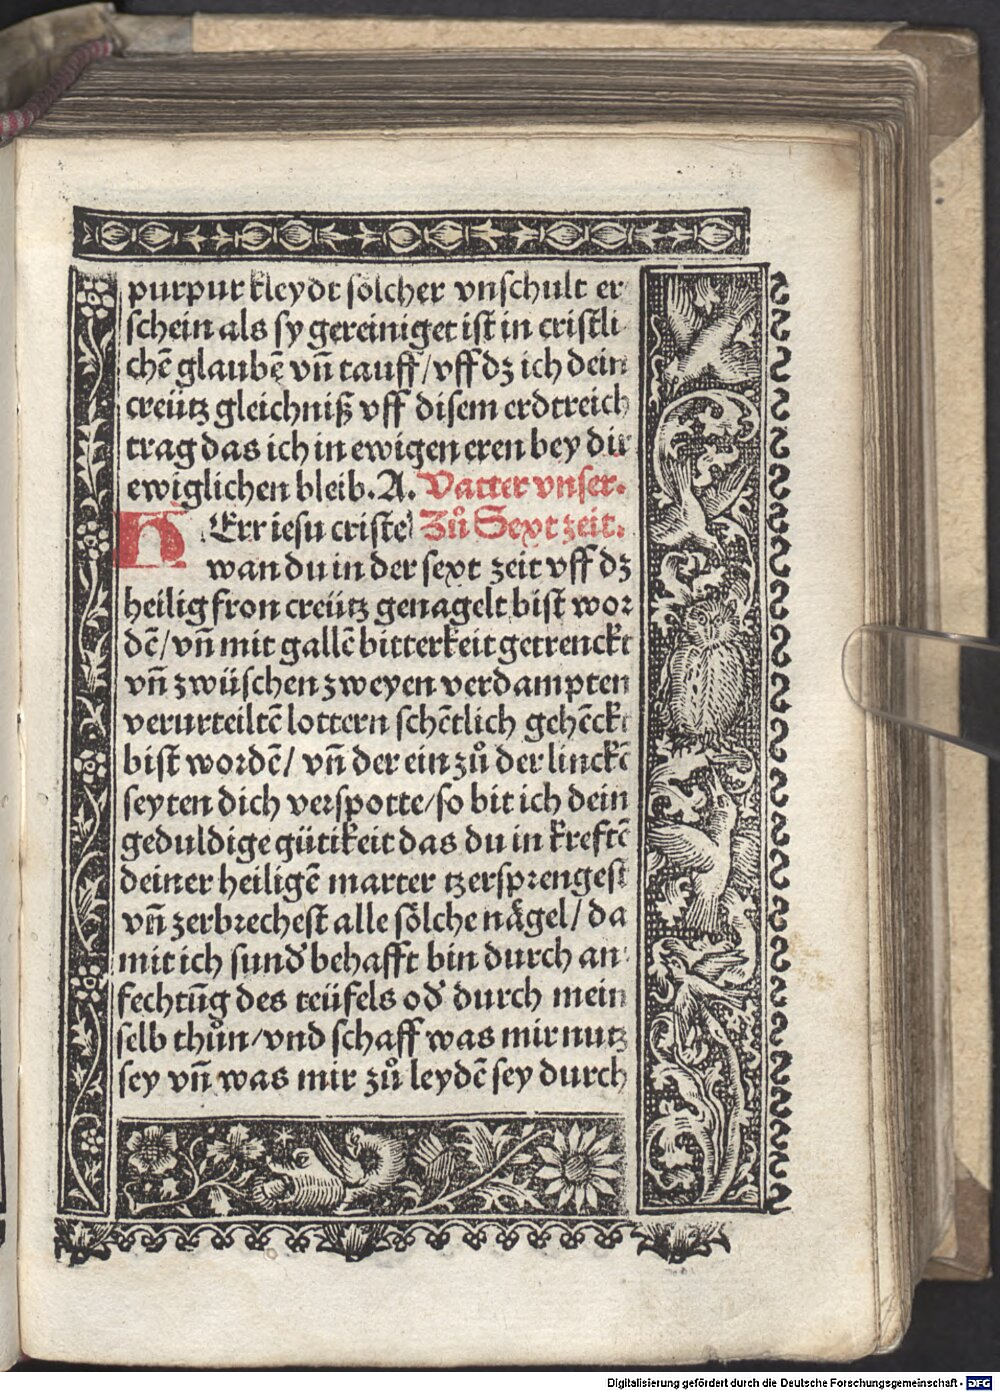 purpur kleydt sölcher vnschult er
schein als sy gereiniget ist in cristli
chē glaubē vñ tauff/vff dz ich dein
creütz gleichniß vff disem erdtreich
trag das ich in ewigen eren bey dir
ewiglichen bleib. A. Vatter vnser.
HErr iesu criste Zů Sext zeit.
wan du in der sext zeit vff dz
heilig fron creütz genagelt bist wor
dē/vñ mit gallē bitterkeit getrenckt
vñ zwüschen zweyen verdampten
verurteiltē lottern schētlich gehēckt
bist wordē/ vñ der ein zů der linckē
seyten dich verspotte/so bit ich dein
geduldige gütikeit das du in kreftē
deiner heiligē marter tzersprengest
vñ zerbrechest alle sölche nägel/ da
mit ich sund' behafft bin durch an
fechtūg des teüfels od' durch mein
selb thůn/vnd schaff was mir nutz
sey vñ was mir zů leydē sey durch
Digitalisierung gefördert durch die Deutsche Forschungsgemeinschaft - DFG